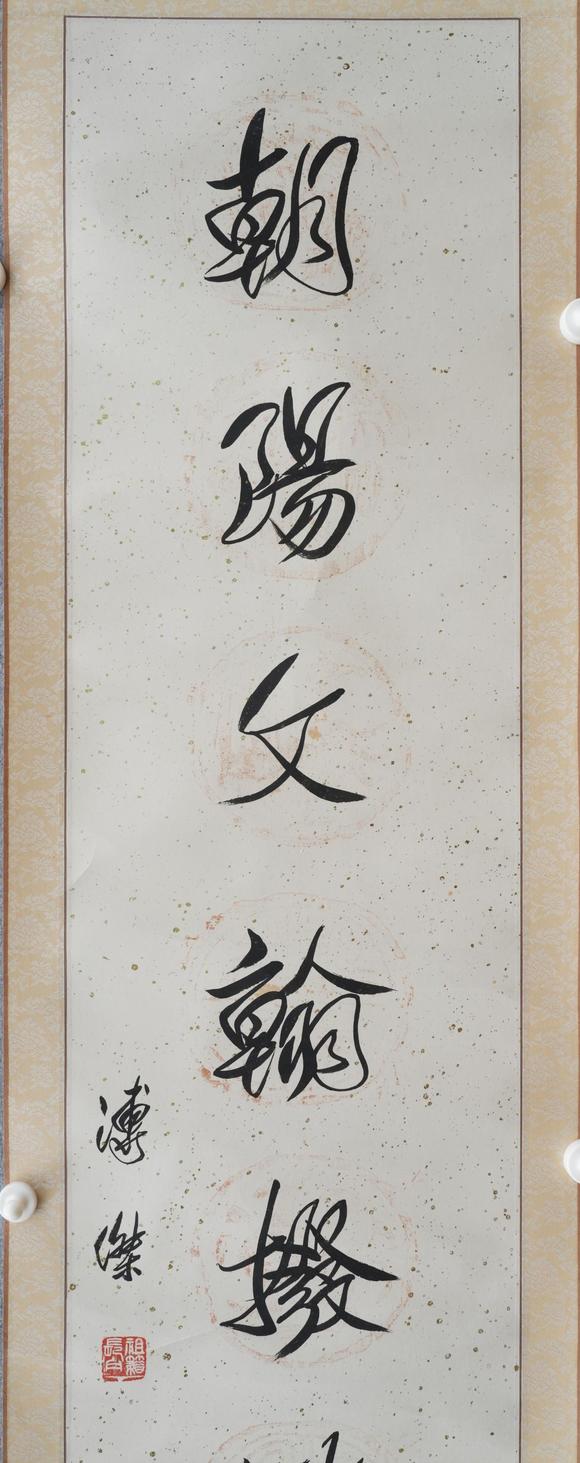 朝陽文翰撥
溥傑